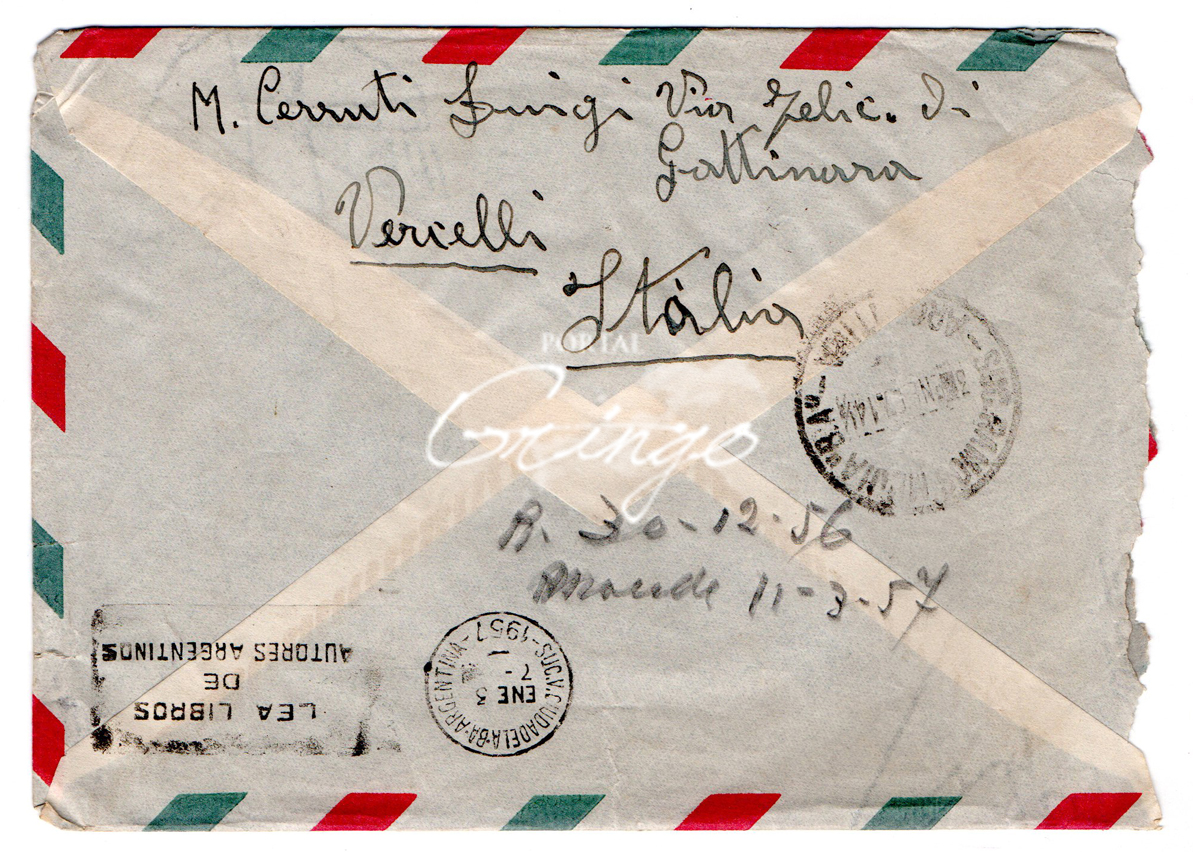 M. Cerruti Luigi Via Felic. di
Gattinara
Vercelli
Itália
PORTAL
Gringo
R. 30-12-56
11-3-57
LEA LIBROS
DE
AUTORES ARGENTINOS
SUC.V.CIUDADELA-BA-ARGENTINA
ENE 3
7-
-1957-